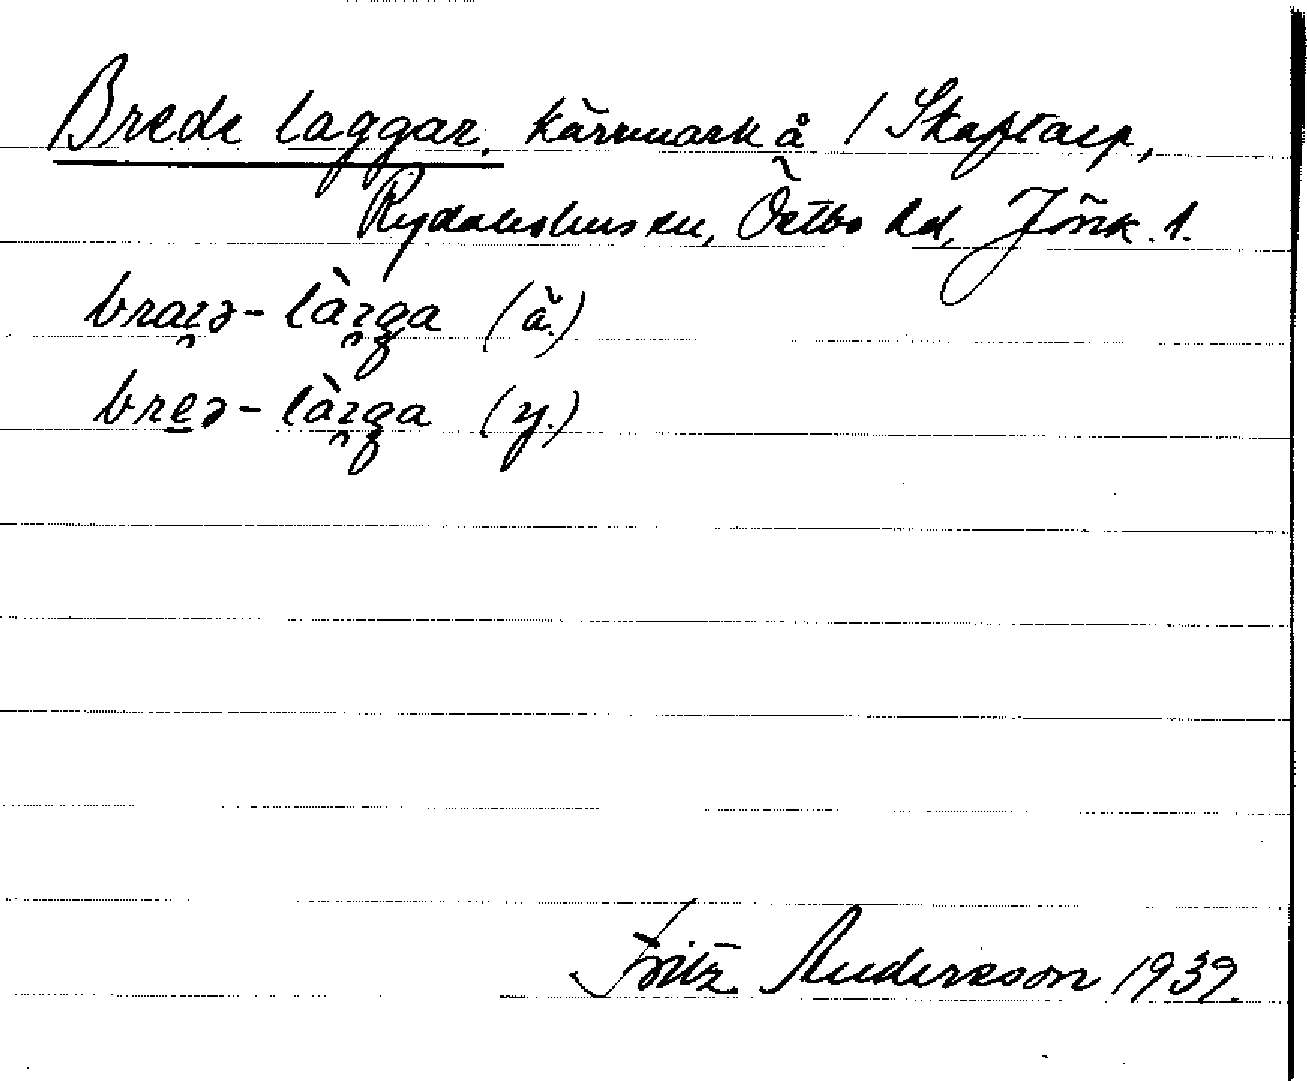 Brede laggar, kärrmark å / Skaftarp,
Rydaholms sn, Östbo hd, Jönk. l.
braıə-làɪga (ä.)
breə-làɪga (y.)
Fritz Andersson 1939.